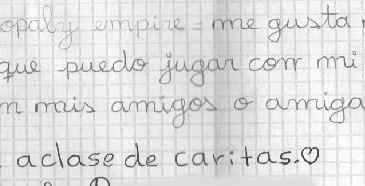 opaly empire = me gusta
que puedo jugar con mi
n mis amigos o amiga
a clase de caritas.♡